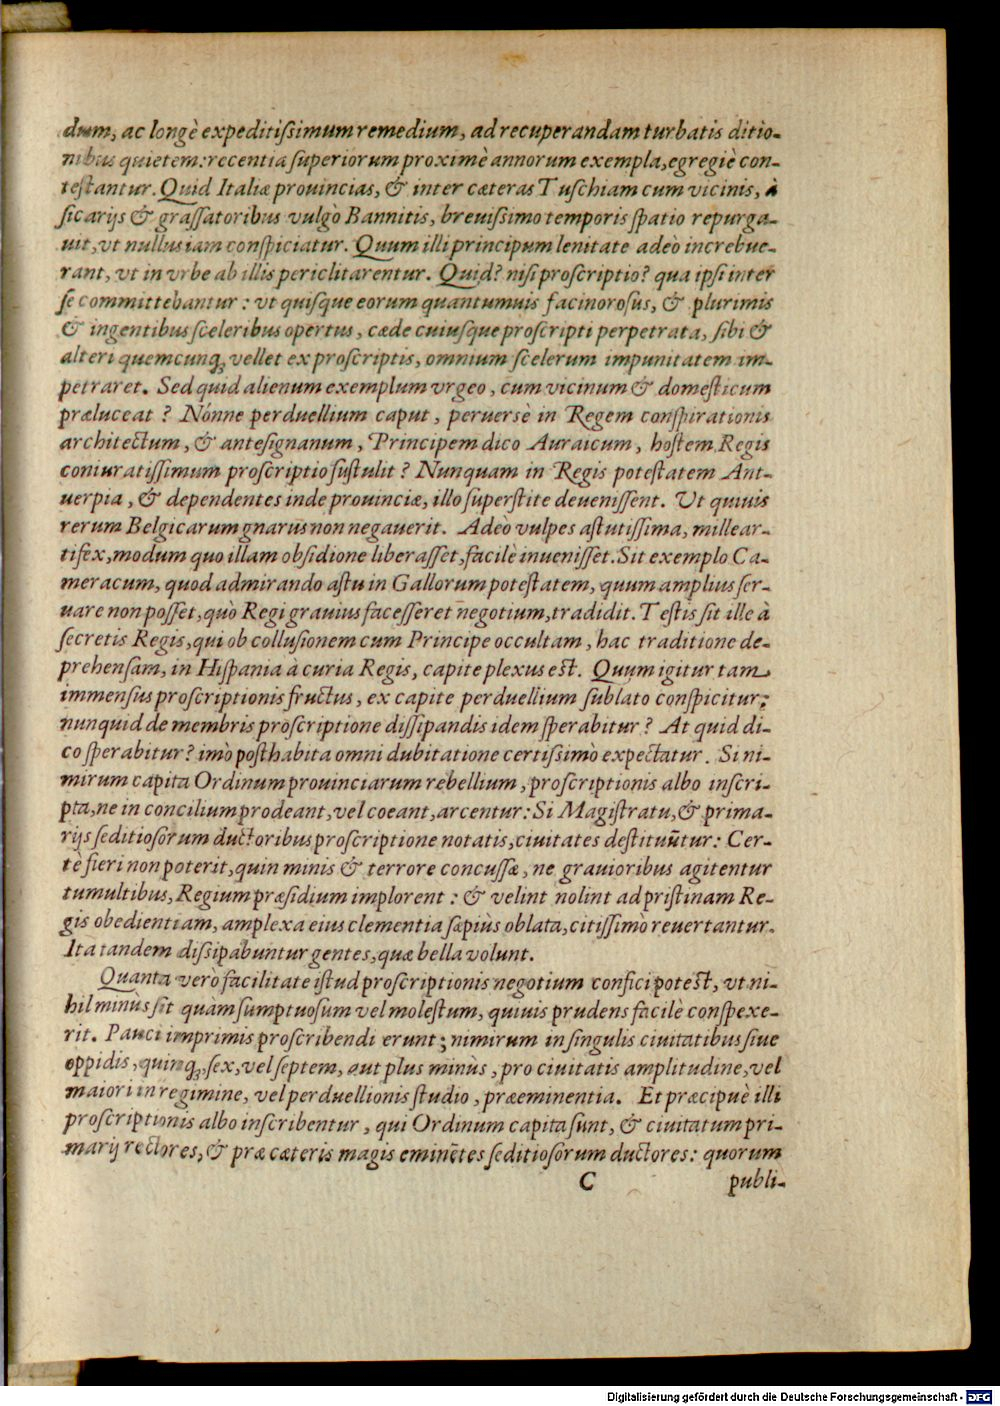 dum, ac longè expeditiſsimum remedium, ad recuperandam turbatis ditio-
nibus quietem: recentia ſuperiorum proximè annorum exempla, egregiè con-
teſtantur. Quid Italiæ prouincias, & inter cæteras Tuſchiam cum vicinis, à
ſicarijs & graſſatoribus vulgò Bannitis, breuiſsimo temporis ſpatio repurga-
uit, vt nullus iam conſpiciatur. Quum illi principum lenitate adeò increbue-
rant, vt in vrbe ab illis periclitarentur. Quid? niſi proſcriptio? qua ipſi inter
ſe committebantur: vt quiſque eorum quantumuis facinoroſus, & plurimis
& ingentibus ſceleribus opertus, cæde cuiuſque proſcripti perpetrata, ſibi &
alteri quemcunq; vellet ex proſcriptis, omnium ſcelerum impunitatem im-
petraret. Sed quid alienum exemplum vrgeo, cum vicinum & domeſticum
præluceat? Nónne perduellium caput, peruersè in Regem conſpirationis
architectum, & anteſignanum, Principem dico Auraicum, hoſtem Regis
coniuratiſsimum proſcriptio ſuſtulit? Nunquam in Regis poteſtatem Ant-
uerpia, & dependentes inde prouinciæ, illo ſuperſtite deueniſſent. Ut quiuis
rerum Belgicarum gnarus non negauerit. Adeò vulpes aſtutiſsima, millear-
tifex, modum quo illam obſidione liberaſſet, facilè inueniſſet. Sit exemplo Ca-
meracum, quod admirando aſtu in Gallorum poteſtatem, quum amplius ſer-
uare non poſſet, quò Regi grauius faceſſeret negotium, tradidit. Teſtis ſit ille à
ſecretis Regis, qui ob colluſionem cum Principe occultam, hac traditione de-
prehenſam, in Hiſpania à curia Regis, capite plexus eſt. Quum igitur tam
immenſus proſcriptionis fructus, ex capite perduellium ſublato conſpicitur;
nunquid de membris proſcriptione diſsipandis idem ſperabitur? At quid di-
co ſperabitur? imò poſthabita omni dubitatione certiſsimò expectatur. Si ni-
mirum capita Ordinum prouinciarum rebellium, proſcriptionis albo inſcri-
pta, ne in concilium prodeant, vel coeant, arcentur: Si Magiſtratu, & prima-
rijs ſeditioſorum ductoribus proſcriptione notatis, ciuitates deſtituūtur: Cer-
tè fieri non poterit, quin minis & terrore concuſſæ, ne grauioribus agitentur
tumultibus, Regium præſidium implorent: & velint nolint ad priſtinam Re-
gis obedientiam, amplexa eius clementia ſæpiùs oblata, citiſsimò reuertantur.
Ita tandem diſsipabuntur gentes, quæ bella volunt.
Quanta verò facilitate iſtud proſcriptionis negotium confici poteſt, vt ni-
hil minùs ſit quàm ſumptuoſum vel moleſtum, quiuis prudens facilè conſpexe-
rit. Pauci imprimis proſcribendi erunt; nimirum in ſingulis ciuitatibus ſiue
oppidis, quinq;, ſex, vel ſeptem, aut plus minùs, pro ciuitatis amplitudine, vel
maiori in regimine, vel perduellionis ſtudio, præeminentia. Et præcipuè illi
proſcriptionis albo inſcribentur, qui Ordinum capita ſunt, & ciuitatum pri-
marij rectores, & præ cæteris magis eminētes ſeditioſorum ductores: quorum
C publi-
Digitalisierung gefördert durch die Deutsche Forschungsgemeinschaft - DFG